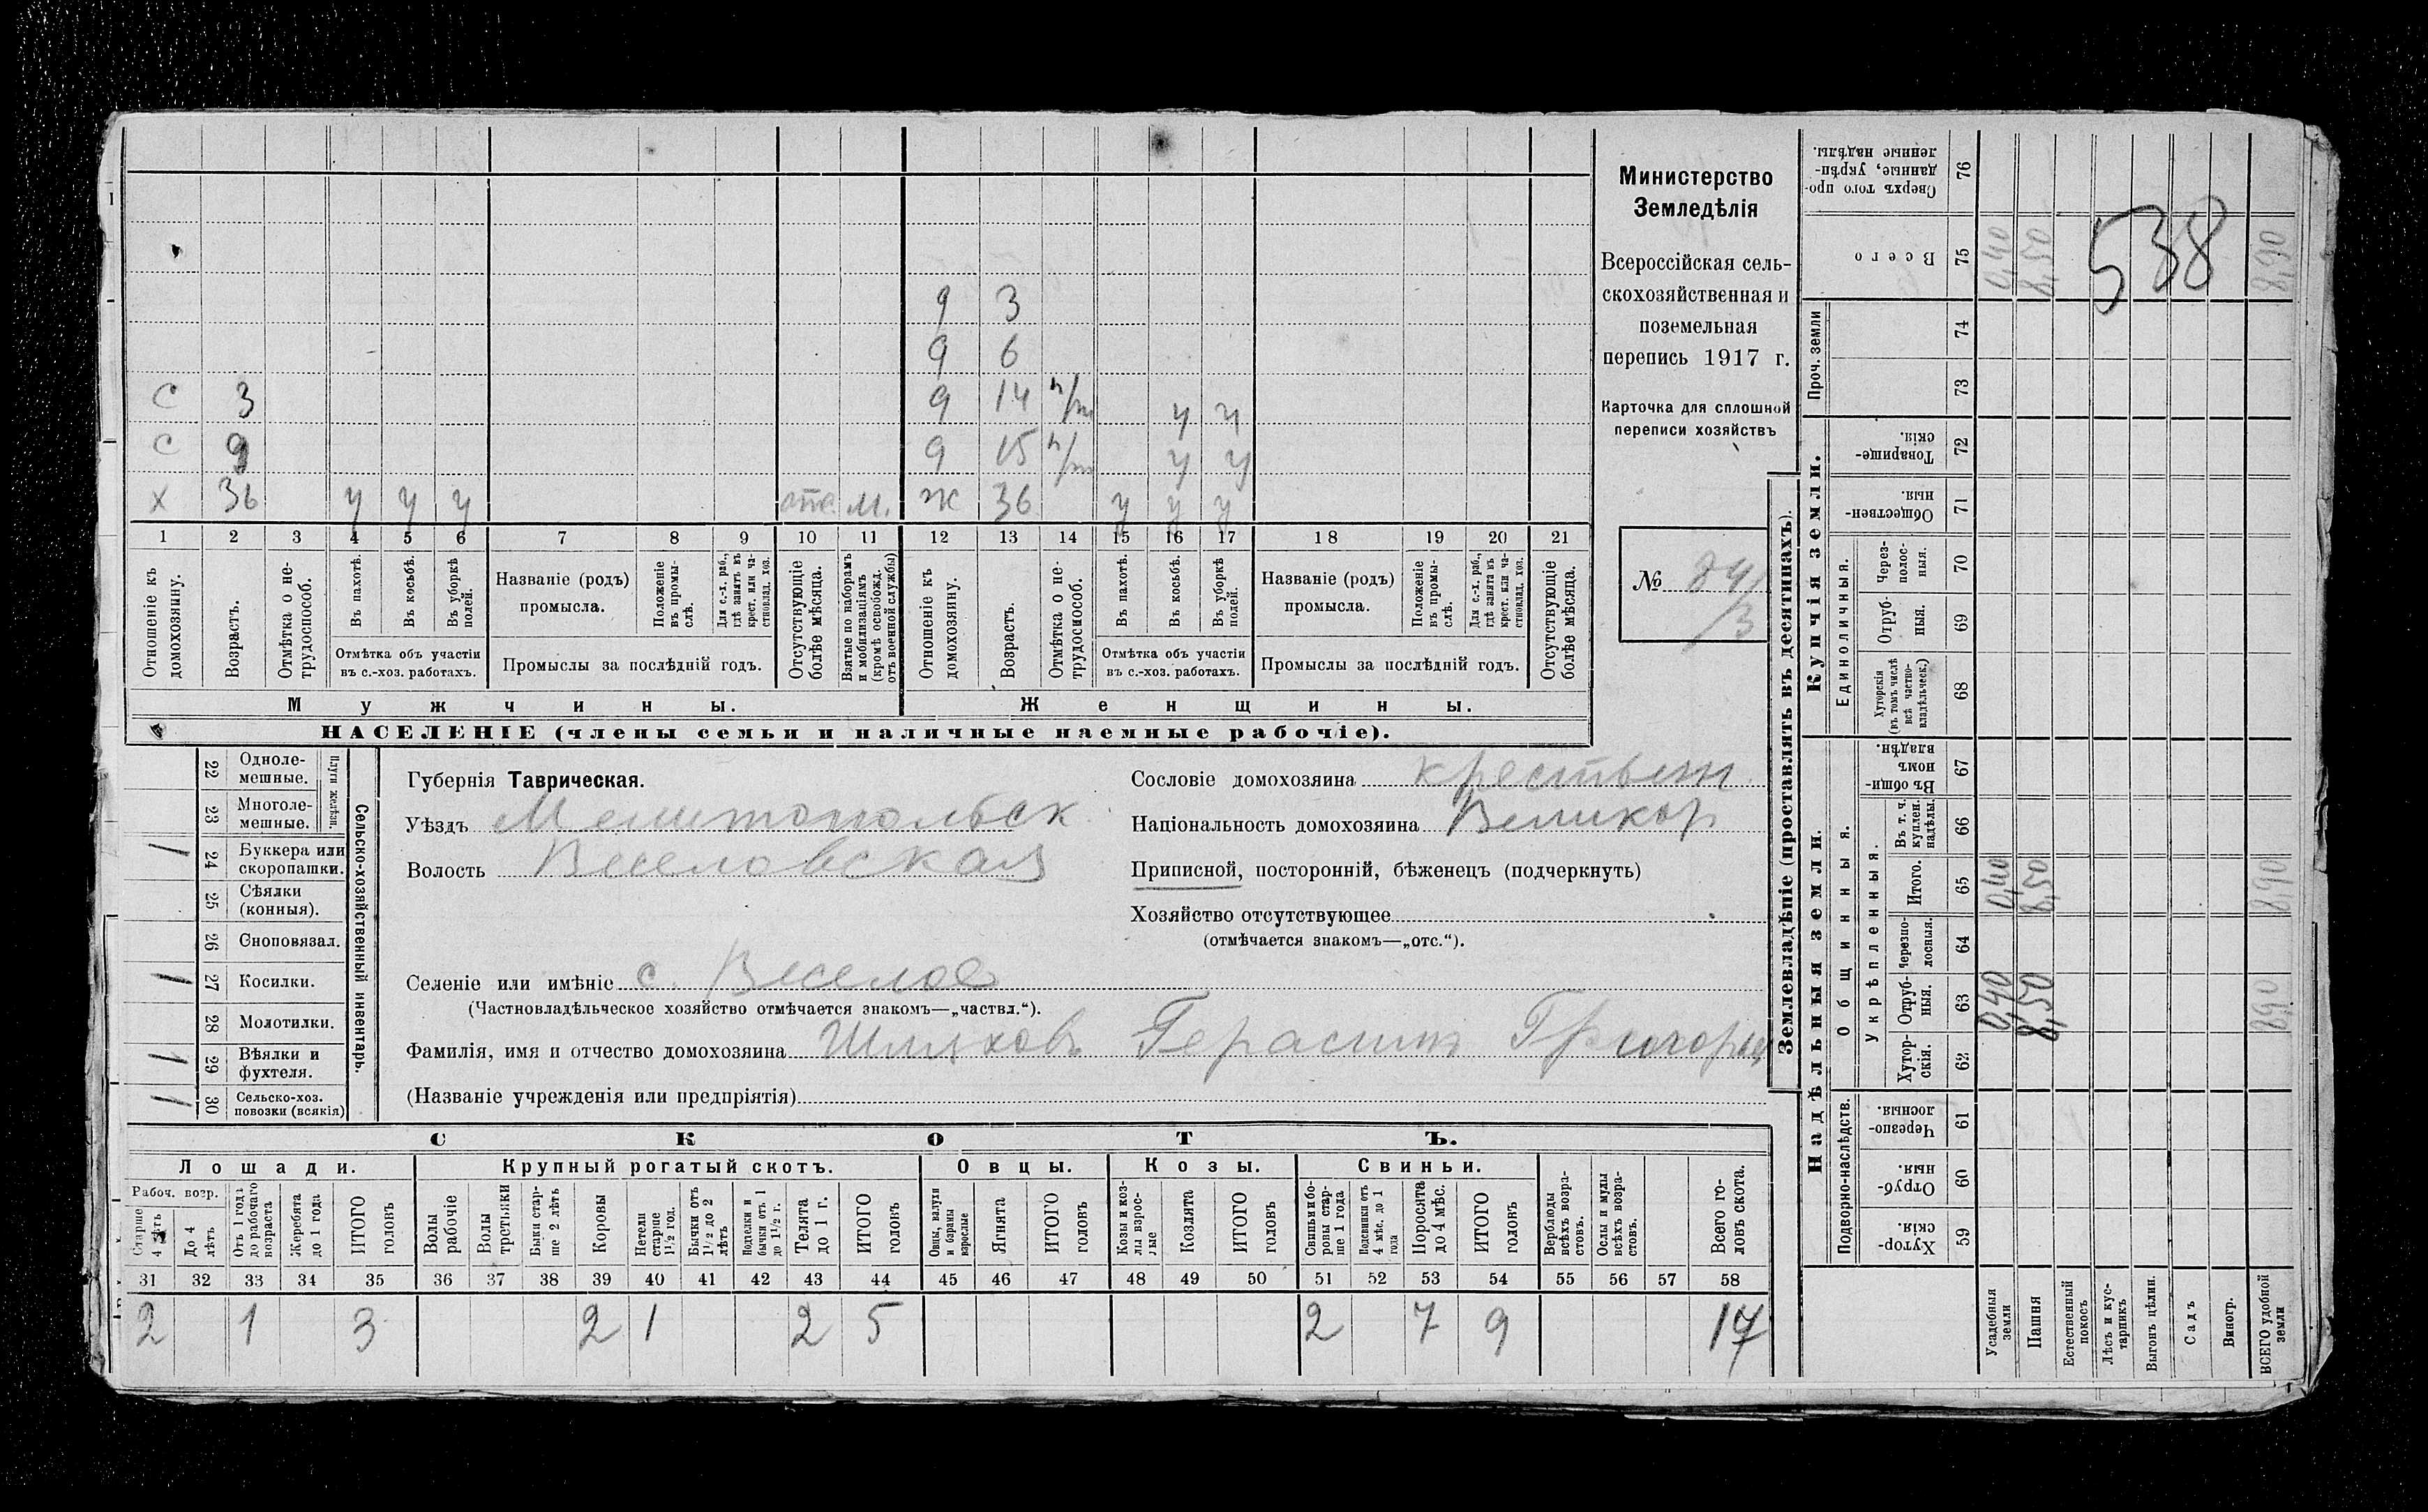 с 3
с 9
х 36 у у у отс. м.
д 3
д 6
д 14 п/т у у
д 15 п/т у у
ж 36 у у у
1 2 3 4 5 6 7 8 9 10 11 12 13 14 15 16 17 18 19 20 21
Отношеніе къ домохозяину.
Возрастъ.
Отмѣтка о не-
трудоспособ.
Въ пахотѣ.
Въ косьбѣ.
Въ уборкѣ
полей.
Отмѣтка объ участіи
въ с.-хоз. работахъ.
Названіе (родъ)
промысла.
Положеніе
въ промы-
слѣ.
Для с.-х. раб.,
гдѣ занятъ въ
крест. или ча-
стновлад. хоз.
Промыслы за послѣдній годъ.
Отсутствующіе
болѣе мѣсяца.
Взятые по наборамъ
и мобилизаціямъ
(кромѣ освобожд.
отъ военной службы)
Отношеніе къ
домохозяину.
Возрастъ.
Отмѣтка о не-
трудоспособ.
Въ пахотѣ.
Въ косьбѣ.
Въ уборкѣ
полей.
Отмѣтка объ участіи
въ с.-хоз. работахъ.
Названіе (родъ)
промысла.
Положеніе
въ промы-
слѣ.
Для с.-х. раб.,
гдѣ занята въ
крест. или ча-
стновлад. хоз.
Промыслы за послѣдній годъ.
Отсутствующіе
болѣе мѣсяца.
Мужчины.
Женщины.
НАСЕЛЕНІЕ (члены семьи и наличные наемные рабочіе).
Министерство
Земледѣлія
Всероссійская сель-
скохозяйственная и
поземельная
перепись 1917 г.
Карточка для сплошной
переписи хозяйствъ
№ 841
/3
22 Однолe-
мешные.
23 Многоле-
мешные.
Плуги желѣзн.
1 24 Буккера или
скоропашки.
25 Сѣялки
(конныя).
26 Сноповязал.
1 27 Косилки.
28 Молотилки.
1 1 29 Вѣялки и
фухтеля.
1 1 30 Сельско-хоз.
повозки (всякія)
Сельско-хозяйственный инвентарь.
Губернія Таврическая.
Уѣздъ Мелитопольск
Волость Веселовская
Селеніе или имѣніе с. Веселое
(Частновладѣльческое хозяйство отмѣчается знакомъ—„частвл.“).
Фамилія, имя и отчество домохозяина Шляховъ Герасимъ Григорьев
(Названіе учрежденія или предпріятія)
Сословіе домохозяина крестьян
Національность домохозяина Великор
Приписной, посторонній, бѣженецъ (подчеркнуть)
Хозяйство отсутствующее
(отмѣчается знакомъ—„отс.“).
СКОТЪ.
Лошади. Крупный рогатый скотъ. Овцы. Козы. Свиньи.
Рабоч. возр.
Старше
4 лѣтъ
До 4
лѣтъ
Отъ 1 года
до рабочаго
возраста
Жеребята
до 1 года
ИТОГО
головъ
Волы
рабочіе
Волы
третьяки
Быки стар-
ше 2 лѣтъ
Коровы
Нетели
старше
1½ год.
Бычки отъ
1½ до 2
лѣтъ
Подтелки и
бычки отъ 1
до 1½ г.
Телята
до 1 г.
ИТОГО
головъ
Овцы, валухи
и бараны
взрослые
Ягнята
ИТОГО
головъ
Козы и коз-
лы взрос-
лые
Козлята
ИТОГО
головъ
Свиньи и бо-
ровы стар-
ше 1 года
Подсвинки отъ
4 мѣс. до 1
года
Поросята
до 4 мѣс.
ИТОГО
головъ
Верблюды
всѣхъ возра-
стовъ.
Ослы и мулы
всѣхъ возра-
стовъ.
Всего го-
ловъ скота.
31 32 33 34 35 36 37 38 39 40 41 42 43 44 45 46 47 48 49 50 51 52 53 54 55 56 57 58
2 1 3 2 1 2 5 2 7 9 17
Землевладѣніе (проставлять въ десятинахъ).
Надѣльныя земли.
Купчія земли.
Проч. земли
Подворно-наслѣдств.
Общинныя.
Укрѣпленныя.
Единоличныя.
Сверхъ того про-
данные, укрѣп-
ленные надѣлы.
76
Всего
75 0,40 8,50 8,90
538
74
73
Товарище-
скія.
72
Обществен-
ныя.
71
Через-
полос-
ныя.
70
Отруб-
ныя.
69
Хуторскія
(въ томъ числѣ
всѣ частно-
владѣльческ.)
68
Въ общин-
номъ
владѣн.
67
Въ т. ч.
куплен.
надѣлы.
66
Итого.
65 0,40 8,50 8,90
Черезпо-
лосныя.
64
Отруб-
ныя.
63 0,40 8,50 8,90
Хутор-
скія.
62
Черезпо-
лосныя.
61
Отруб-
ныя.
60
Хутор-
скія.
59
Усадебныя
земли
Пашня
Естественный
покосъ
Лѣсъ и кус-
тарникъ
Выгонъ цѣлин.
Садъ
Виногр.
ВСЕГО удобной
земли